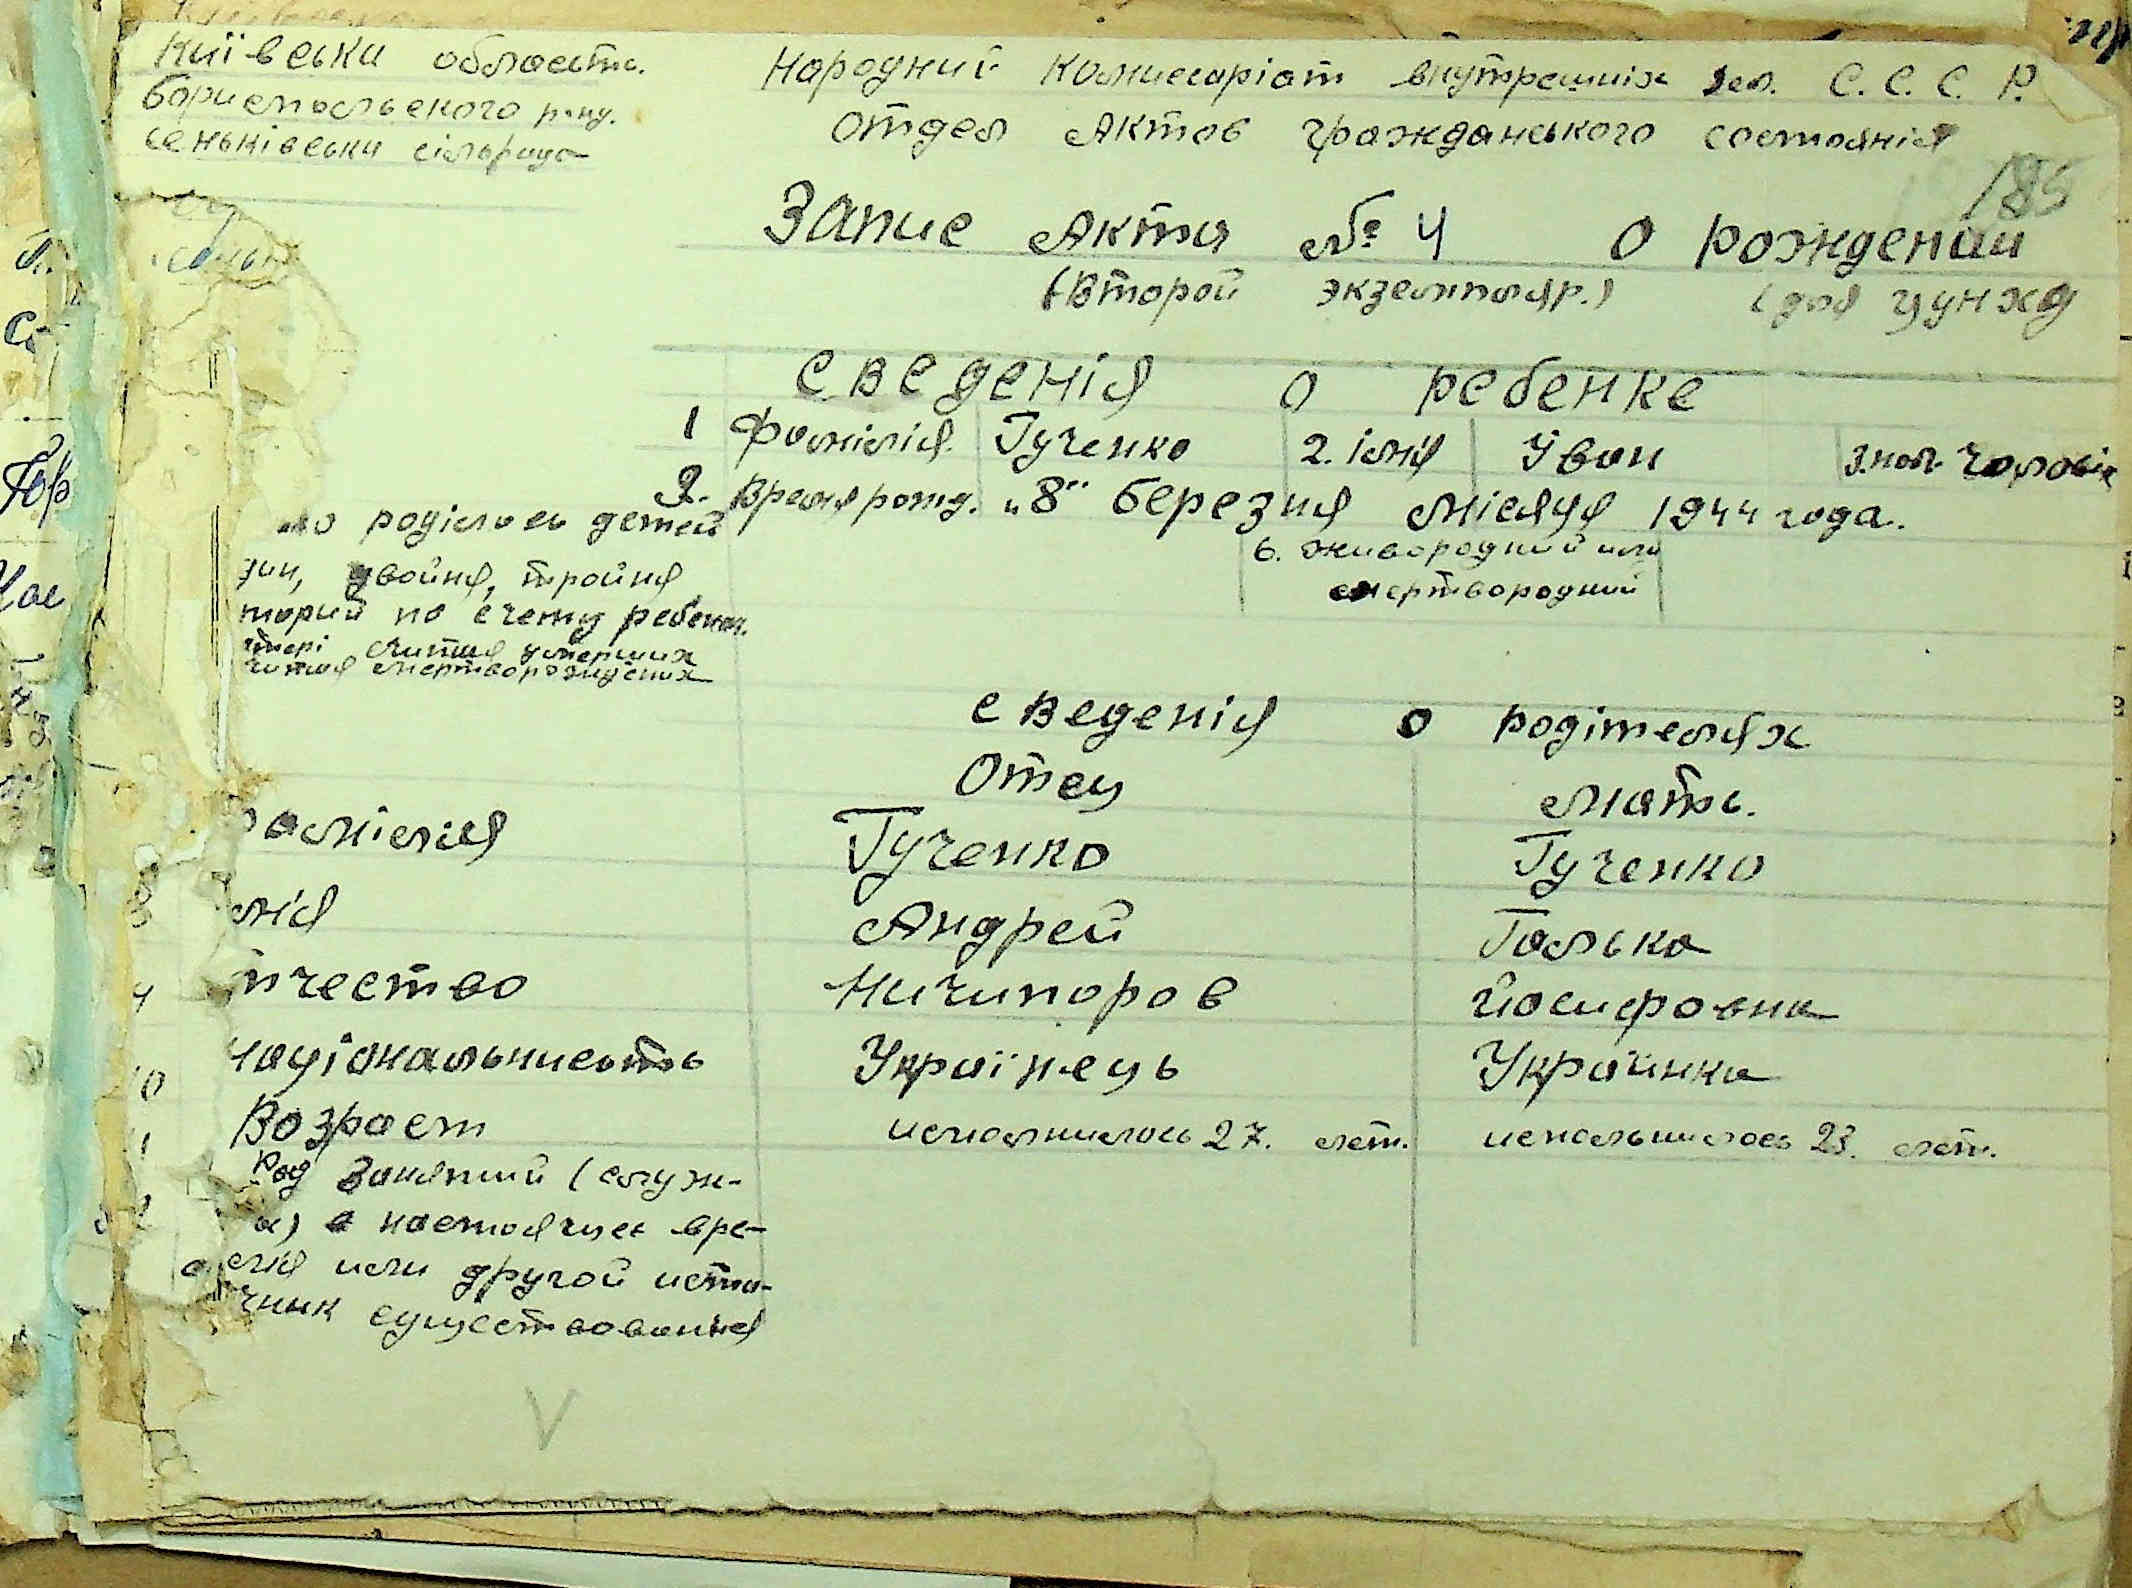 Київськи область.
Бориспольского р-ну.
Сеньківськи сільрада
Народний Комисаріат внутрешніх дел. С.С.С.Р.
Отдел Актов гражданського состоянія
185
Запис Акта № 4 О рождении
(Второй экземпляр.) (для цунху
Сведенія о ребенке
1 Фамілія. Гученко 2. імя Іван 3. пол. Чоловік
2. Время рожд. "8" березня місяця 1944 года.
6. живородний или
мертвородний
ло роділось детей
дин, двойня, тройня
торий по счету ребенок.
тері считая умерших
читая мертворождених
Сведенія о родітелях
Отец Мать.
амілія Гученко Гученко
мя Андрей Галька
тчество Ничипоров Йосифовна
10 національнисть Українець Українка
Возраст исполнилось 27. лет. испольнилось 23. лет.
Род Занятий (служ-
а) в настоящее вре-
мя или другой исто-
чник существования
V